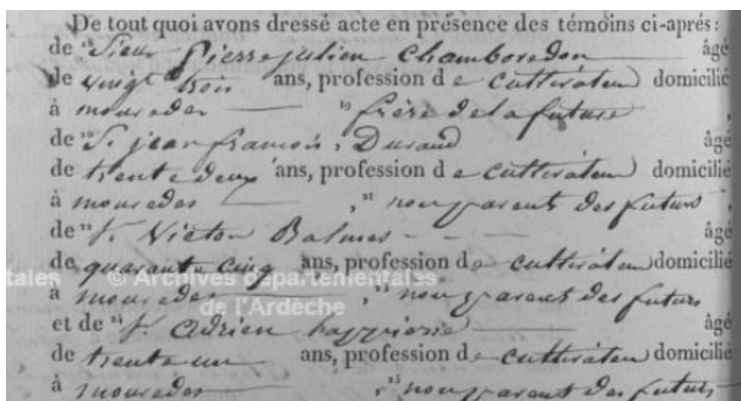 De tout quoi avons dressé acte en présence des témoins ci-après :
de 18 Sieur Pierre julien Chamboredon âgé
de vingt trois ans, profession de cultivateur domicilié
à mouredes 19 frère de la future,
de 20 S. jean francois, Durand âgé
de trente deux ans, profession de cultivateur domicilié
à mouredes, 21 non parent des futurs,
de 22 S. Victor Balmes - - - âgé
de quarante cinq ans, profession de cultivateur domicilié
à mouredes, 23 non parent des futurs
et de 24 S. Adrien âgé
de trente un ans, profession de cultivateur domicilié
à mouredes, 25 non parent des futurs
tales © Archives départementales
de l'Ardèche